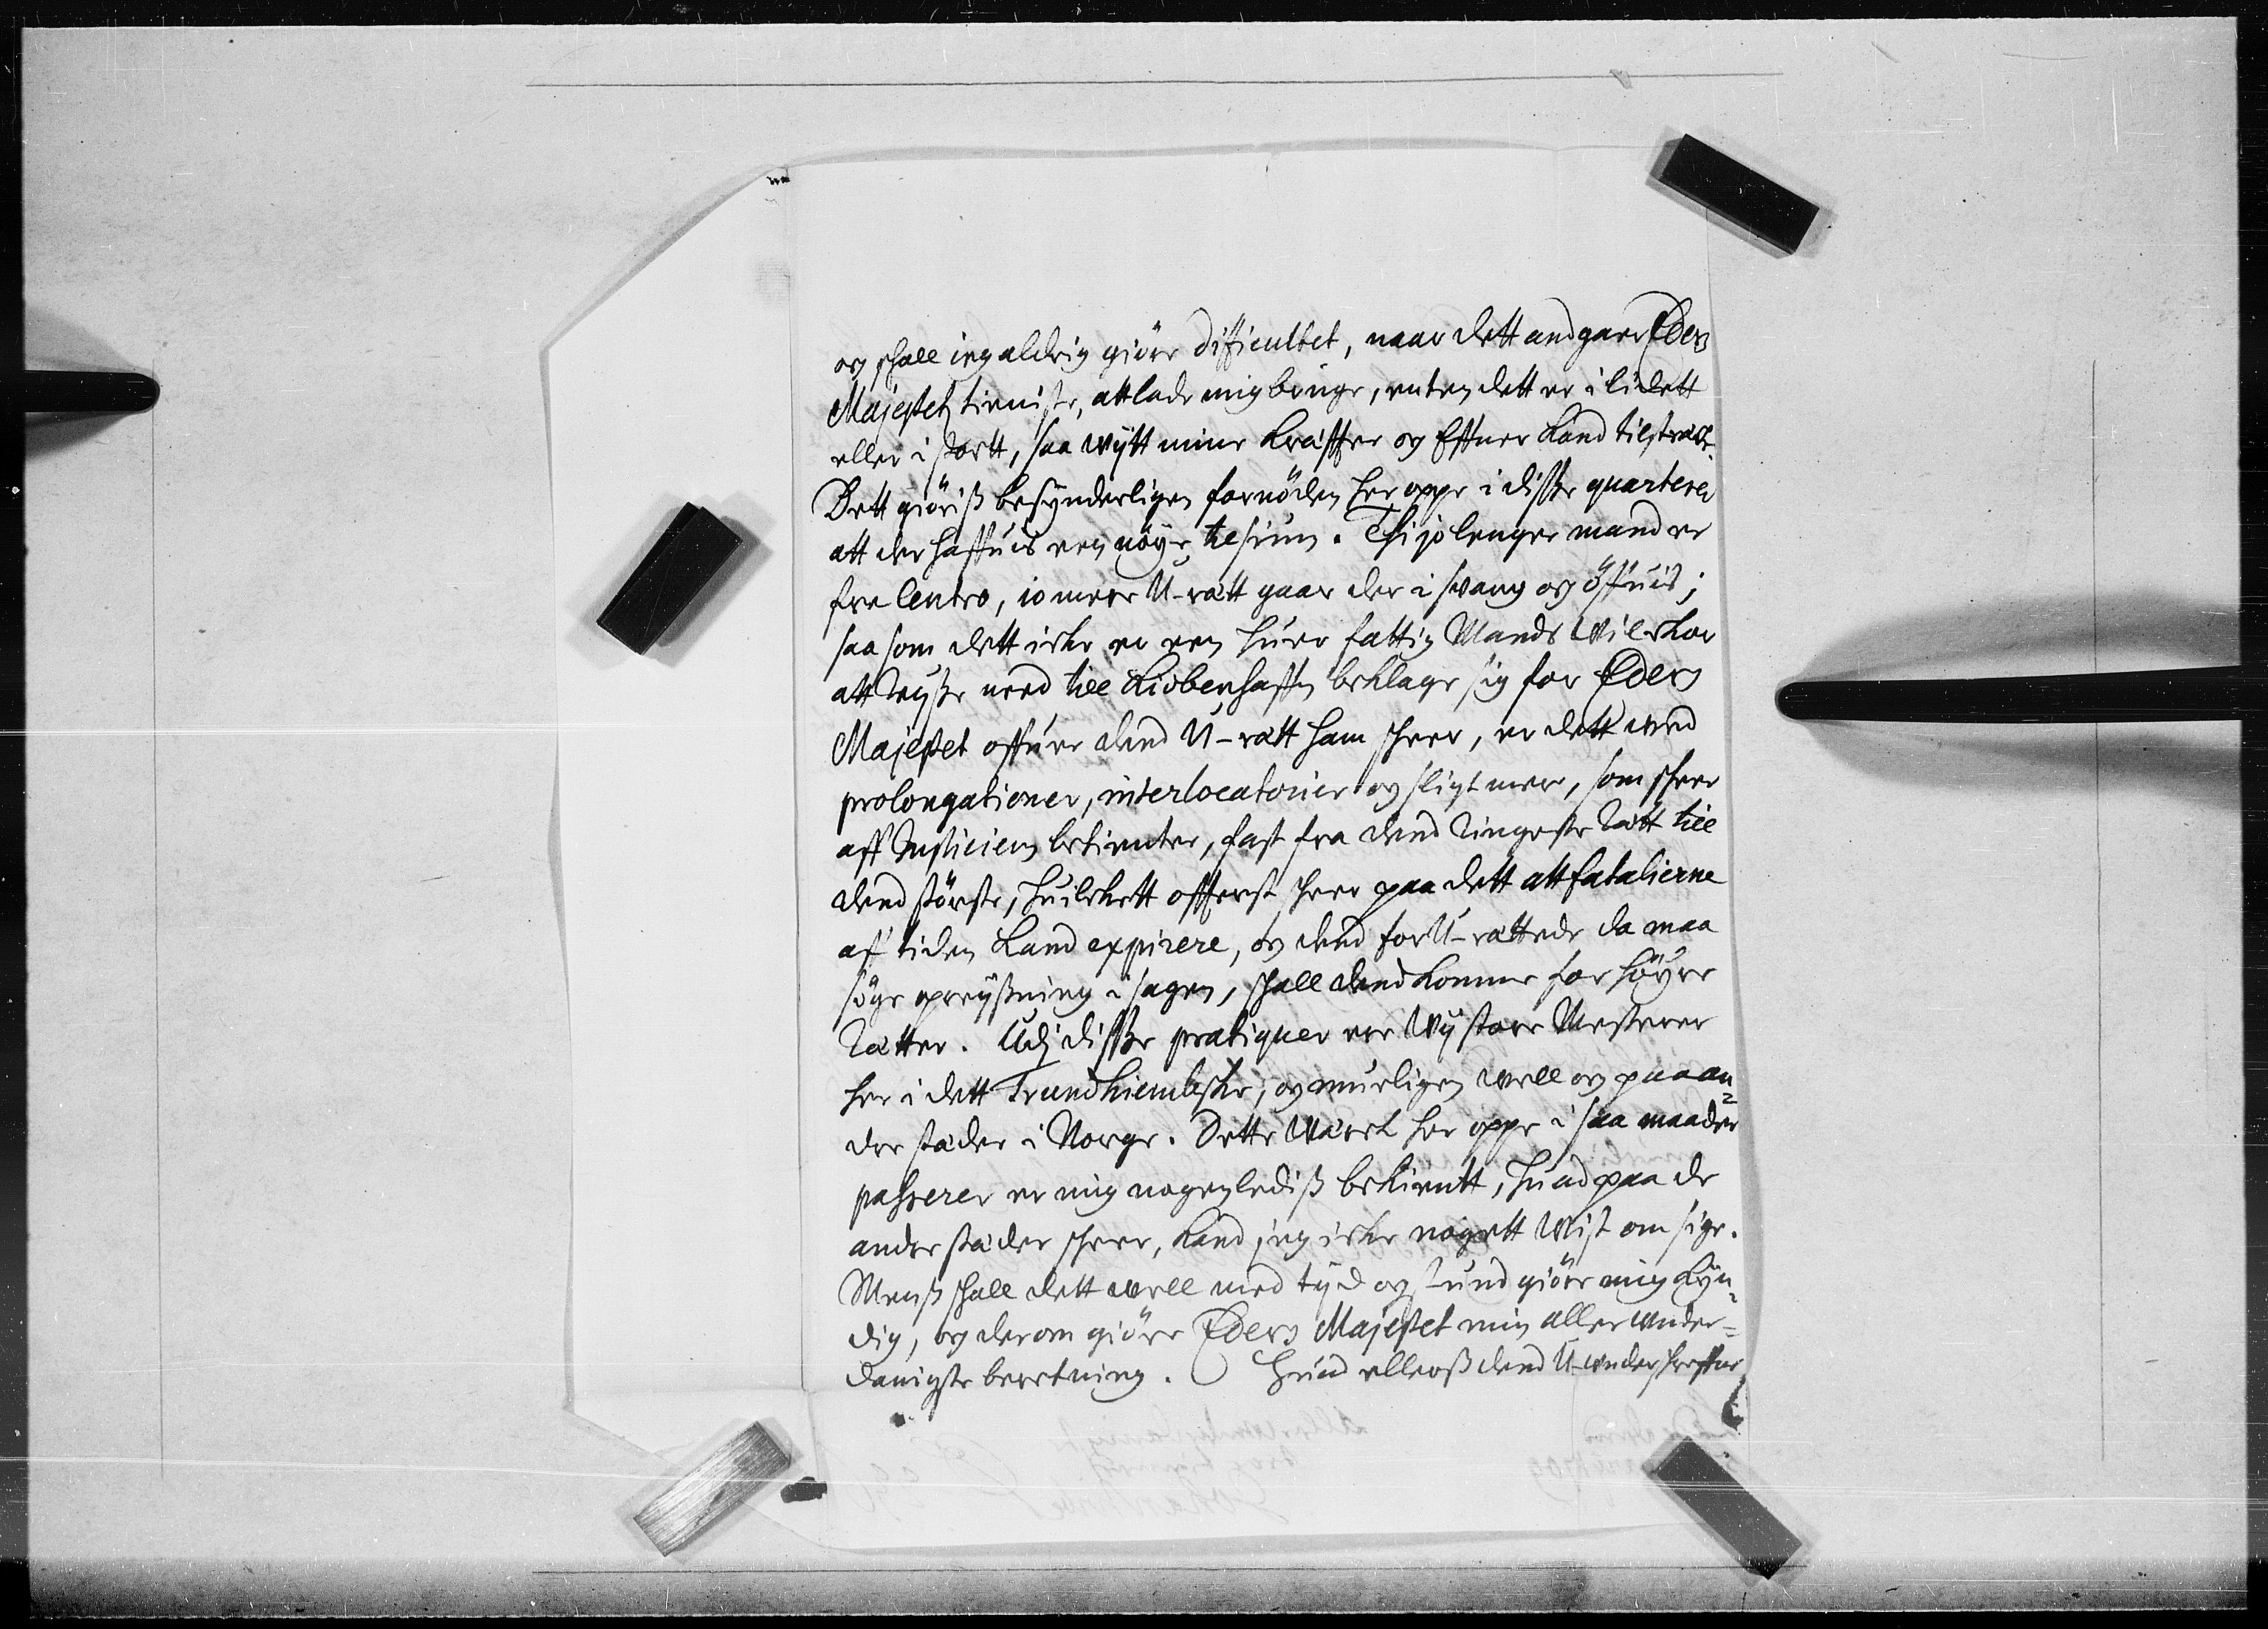 og schall jeg aldrig giöre dificultet, naar dett andgaar Eders
Majestetz tieniste, att lade mig bruge, enten dett er i lidett
eller i stortt, saa wytt mine kräffter og Effner kand tilsträck.
Dett giöriss besynderligen fornöden her oppe i disse quarterer
att der haffues een nöye tilsiun. Thi jo lenger mand er
fra Centro, jo meer U-rätt gaar der i swang og öffuis;
saa som dett icke er een huer fattig Mands wilckor
att reysse need till Kiöbenhaffn beklage sig for Eders
Majestet offuer dend U-rätt ham scheer, er dett med
prolongationer, interlocatorier og sligt mere, som scheer
aff Justiciens betienter, fast fra dend ringeste rätt till
dend störste, huilckett offterst scheer paa dett att fatalierne
aff tiden kand expirere, og dend for U-rättede da maa
söge opreyssning i sagen, schall dend komme for höyere
rätter. Udj disse pratiquer ere Wy store Mestere
her i dett Trundhiembske, og mueligen well og paa an=
dre städer i Norge. Dette Werck her oppe i saa maader
passerer er mig nogenlediss bekientt, huad paa de
andre städer scheer, kand jeg icke nogett wist om sige.
Menss schall dett well med tyd og stund giöre mig kyn=
dig, og derom giöre Eders Majestet min aller under=
danigste beretning. Huad elleoss dend U-underschreffne